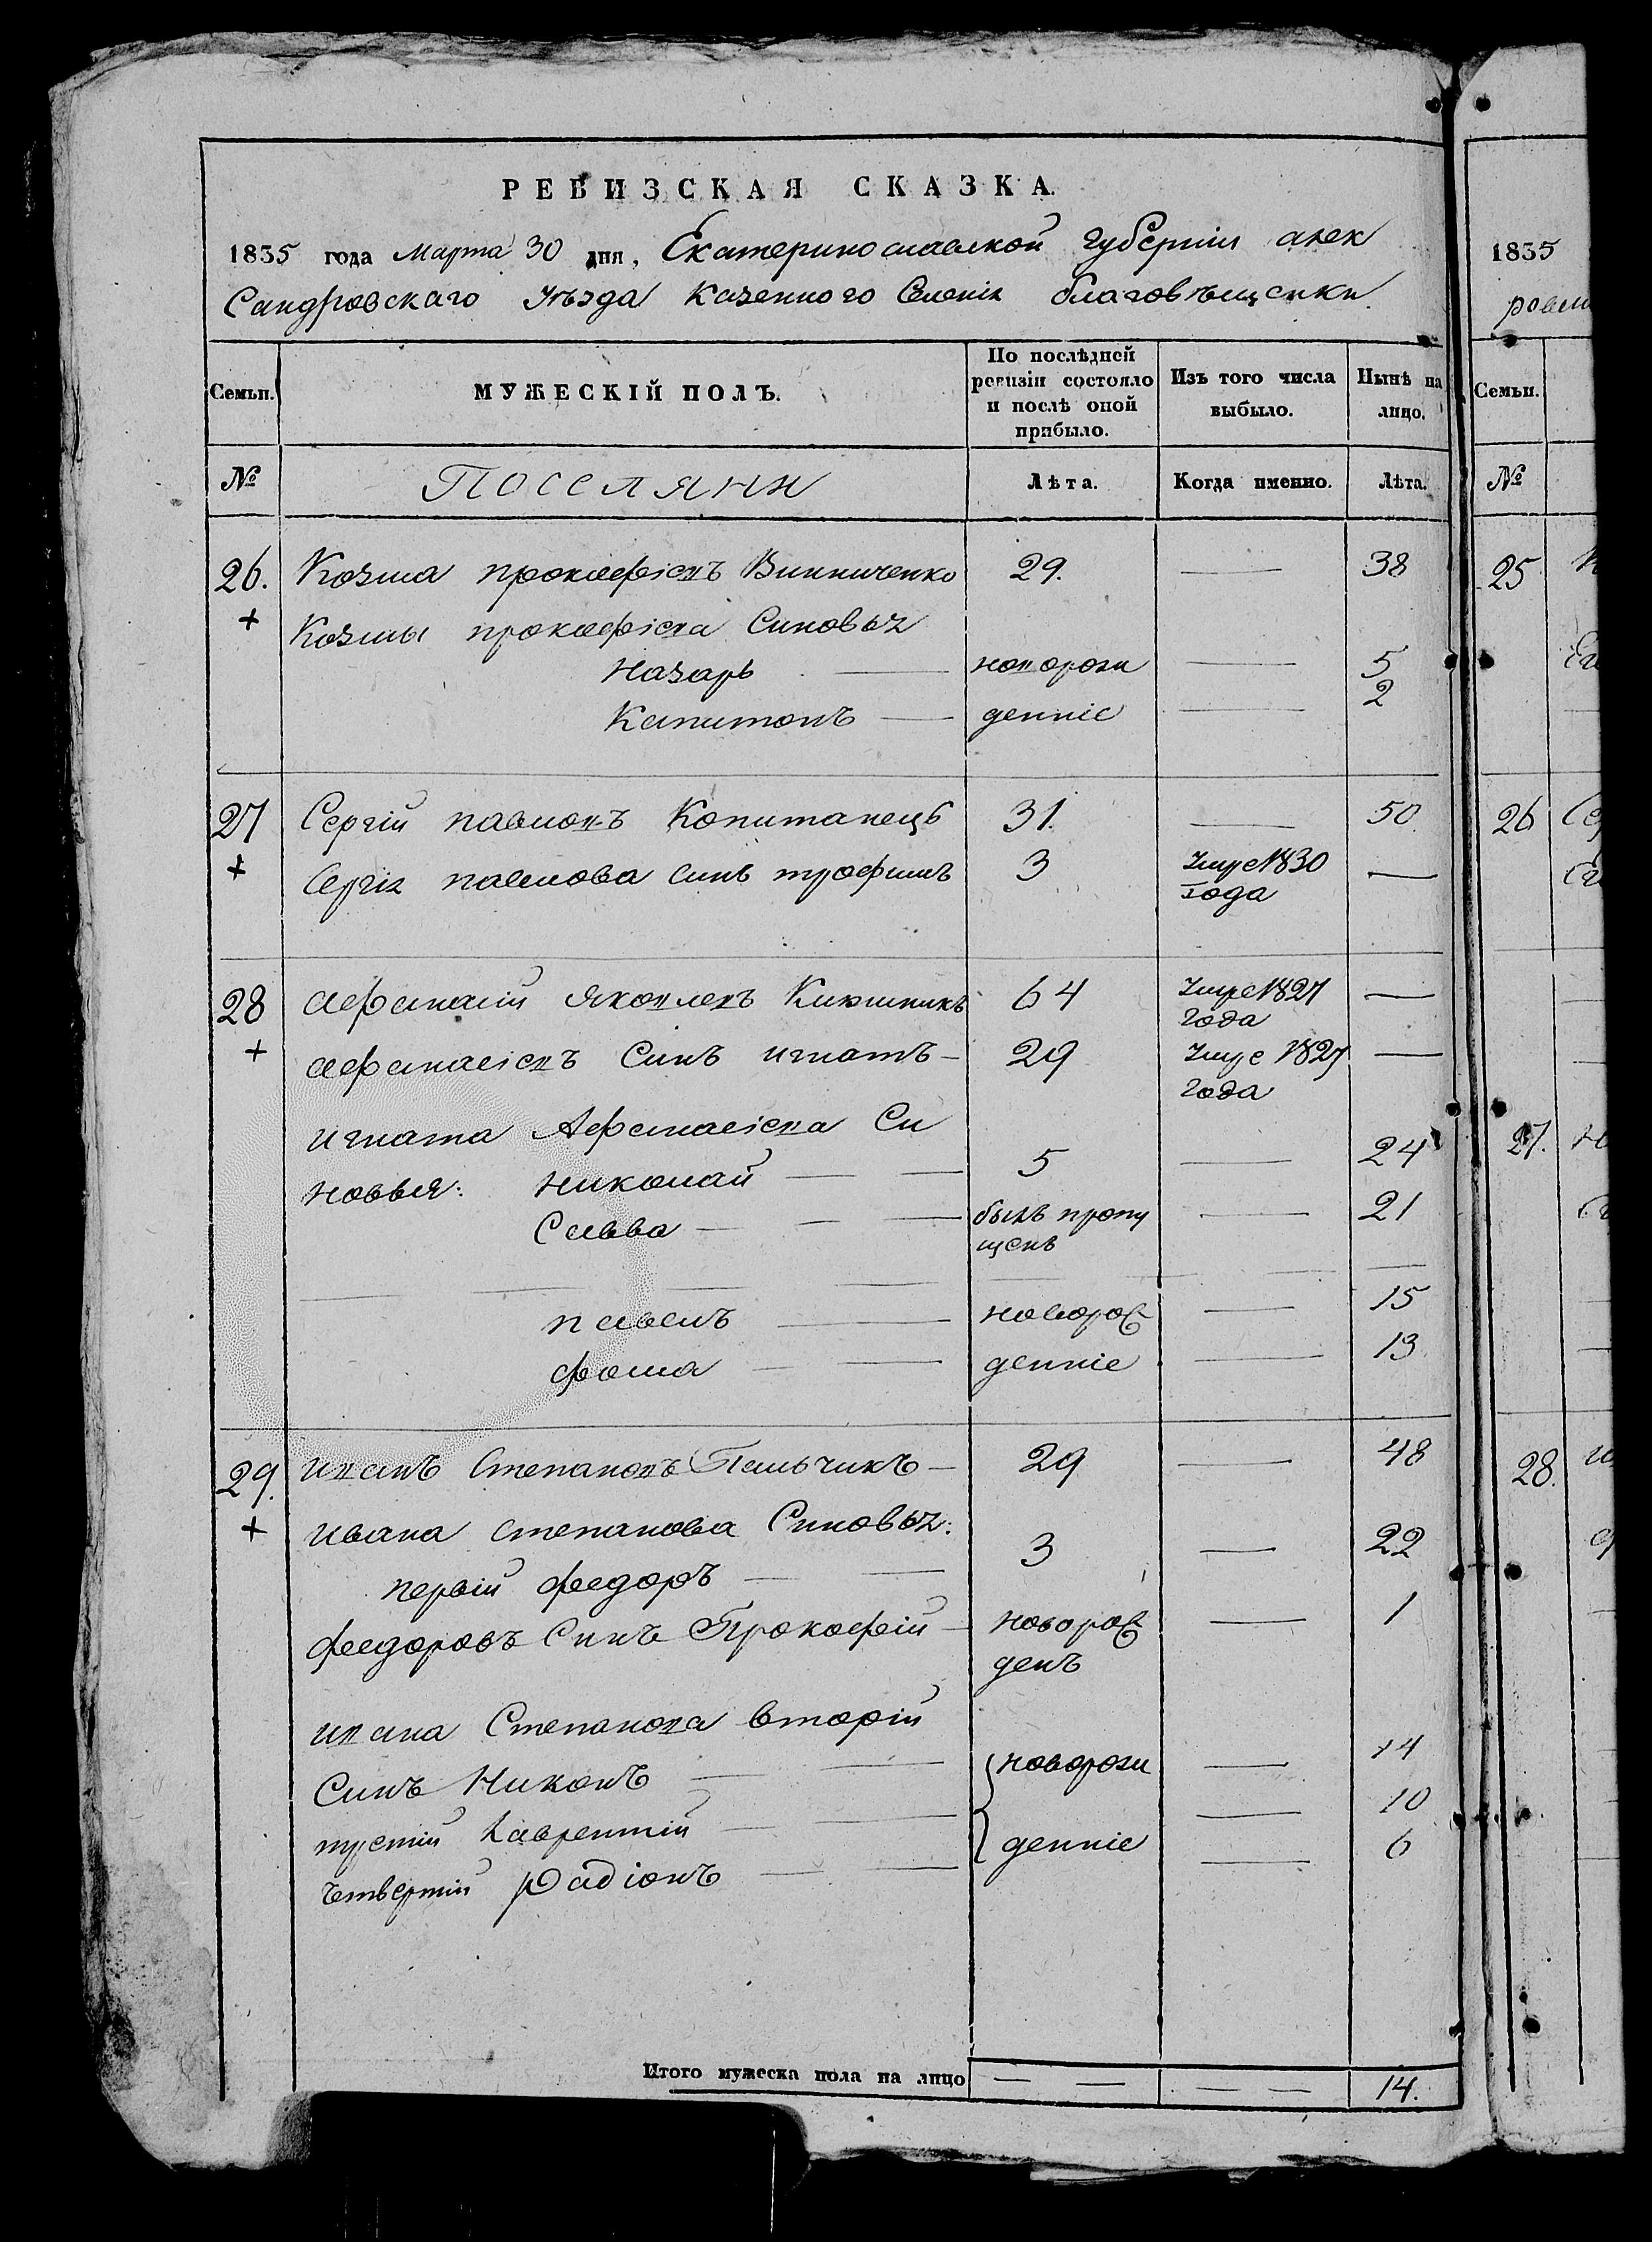 РЕВИЗСКАЯ СКАЗКА.
1835 года Марта 30 дня, Екатеринославской губерніи алек
Сандровскаго Уѣзда Казенного Селенія благовѣщенки
Семьи.
МУЖЕСКІЙ ПОЛЪ.
По послѣдней ревизіи состояло и послѣ оной прибыло.
Изъ того числа выбыло.
Нынѣ на лицо.
№
Поселяни
Лѣта.
Когда именно.
Лѣта.
26. Козма прокофіевъ Винниченко 29. — 38
+ Козмы прокофіева Синовья
Назаръ — новорож — 5
Капитонъ — денніе — 2
27 Сергій павловъ Копитанець 31. — 50.
+ Сергія павлова синъ трофимъ 3 Умре 1830 —
года
28 Афанасій Яковлевъ 64 Умре 1827 —
года
+ афанасіевъ Синъ игнатъ — 29 Умре 1827 —
года
игната Афанасіева Си
новвя: николай — — 5 — 24
Савва — — — былъ пропу — 21
щенъ
— — — — — — — —
павелъ — новорож — 15
фома — — денніе — 13
29. иванъ Степановъ Пальчикъ — 29 — 48
+ ивана степанова Синовья:
первій федоръ — — 3 — 22
федоровъ Синъ Прокофій — новорож — 1
денъ
ивана Степанова вторій
Синъ Никонъ — — новорож — 14
третій Лаврентій — — — 10
четвертій Радіонъ — — денніе — 6
Итого мужеска пола на лицо — — — — 14.
1835
Семьи.
№
25
26
27.
28.